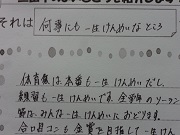 それは 何事にも一生けんめいなところ
体育祭は本番も一生けんめいだし、
練習も一生けんめいです。全学年のソーラン
節は、みんな一生けんめいにおどります。
合唱コンも金賞を目指して一生けん